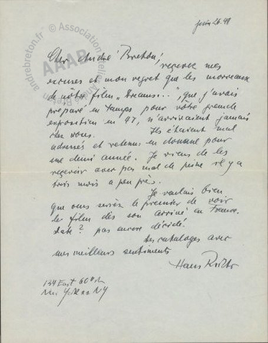 Juin 28.48
Cher André Breton!
recevez mes
excuses et mon regret que les morceaux
de notre film „Dreams...." que j'avais
préparé en temps pour votre grande
exposition en 47, n'arrivaient jamais
chez vous.
Ils étaient mal
adressés et retenus en douane pour
une demi année. Je viens de les
recevoir avec pas mal de peine il y a
trois mois à peu près.
Je voulais bien
que vous soyez le premier de voir
le film dès son arrivé en France.
date? pas encore décidé.
Les catalogues avec
mes meilleurs sentiments
Hans Richter
New York NY
andrebreton.fr
Association